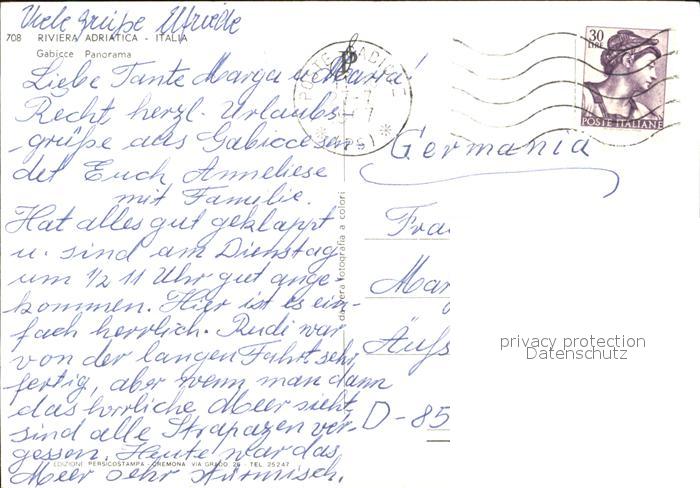 Viele Grüße Ulrike
708 RIVIERA ADRIATICA - ITALIA
Gabicce Panorama
Liebe Tante Marga u. Maria!
Recht herzl. Urlaubs-
grüße aus Gabicce sen-
det Euch Anneliese
mit Familie.
Hat alles gut geklappt
u. sind am Dienstag
um 1/2 11 Uhr gut ange-
kommen. Hier ist es ein-
fach herrlich. Rudi war
von der langen Fahrt sehr
fertig, aber wenn man dann
das herrliche Meer sieht,
sind alle Strapazen ver-
gessen. Heute war das
Meer sehr stürmisch.
EDIZIONI PERSICOSTAMPA - CREMONA VIA GRADO 26 - TEL. 25247
da vera fotografia a colori
POSTE GADICCE
(PS)
30
LIRE
POSTE ITALIANE
Germania
Fra
Mar
Äuß
D-85
privacy protection
Datenschutz